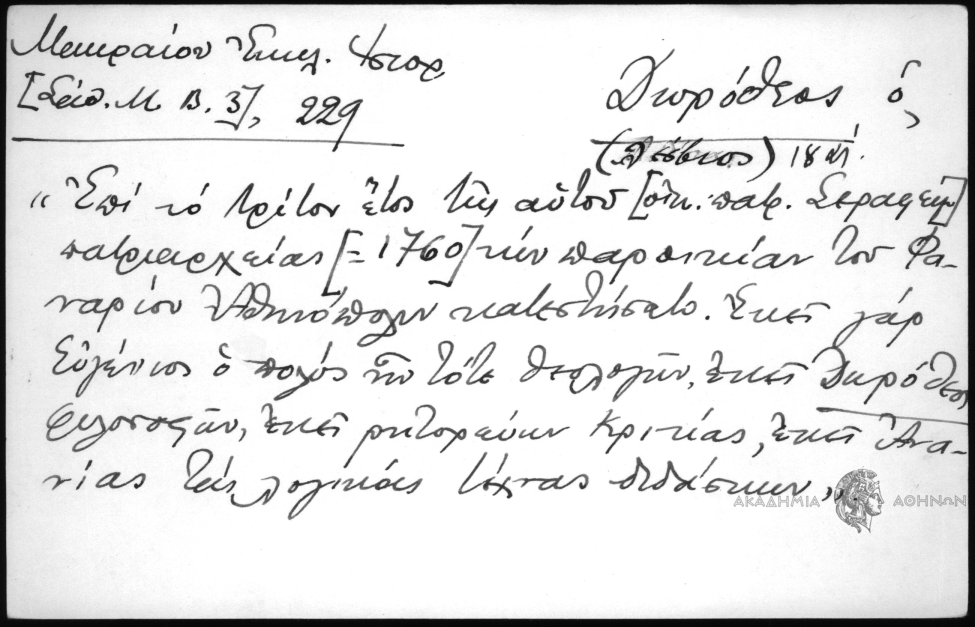 Μακραίου Ἐκκλ. Ἱστορ.
[Σάθ. Μ. Β. 3], 229
Δωρόθεος ὁ,
(Λέσβιος) 18 αἰ.
"Ἐπὶ τὸ τρίτον ἔτος τῆς αὐτοῦ [οἰκ. πατρ. Σεραφείμ]
πατριαρχείας [= 1760] τὴν παροικίαν τοῦ Φα-
ναρίου Ἀθηνόπολιν κατεστήσατο. Ἐκεῖ γάρ
Εὐγένιος ὁ πολὺς ἦν τότε θεολογῶν, ἐκεῖ Δωρόθεος
φιλοσοφῶν, ἐκεῖ ρητορεύων Κριτίας, ἐκεῖ Ἀνα-
νίας τὰς λογικάς τέχνας διδάσκων".
ΑΚΑΔΗΜΙΑ ΑΘΗΝΩΝ